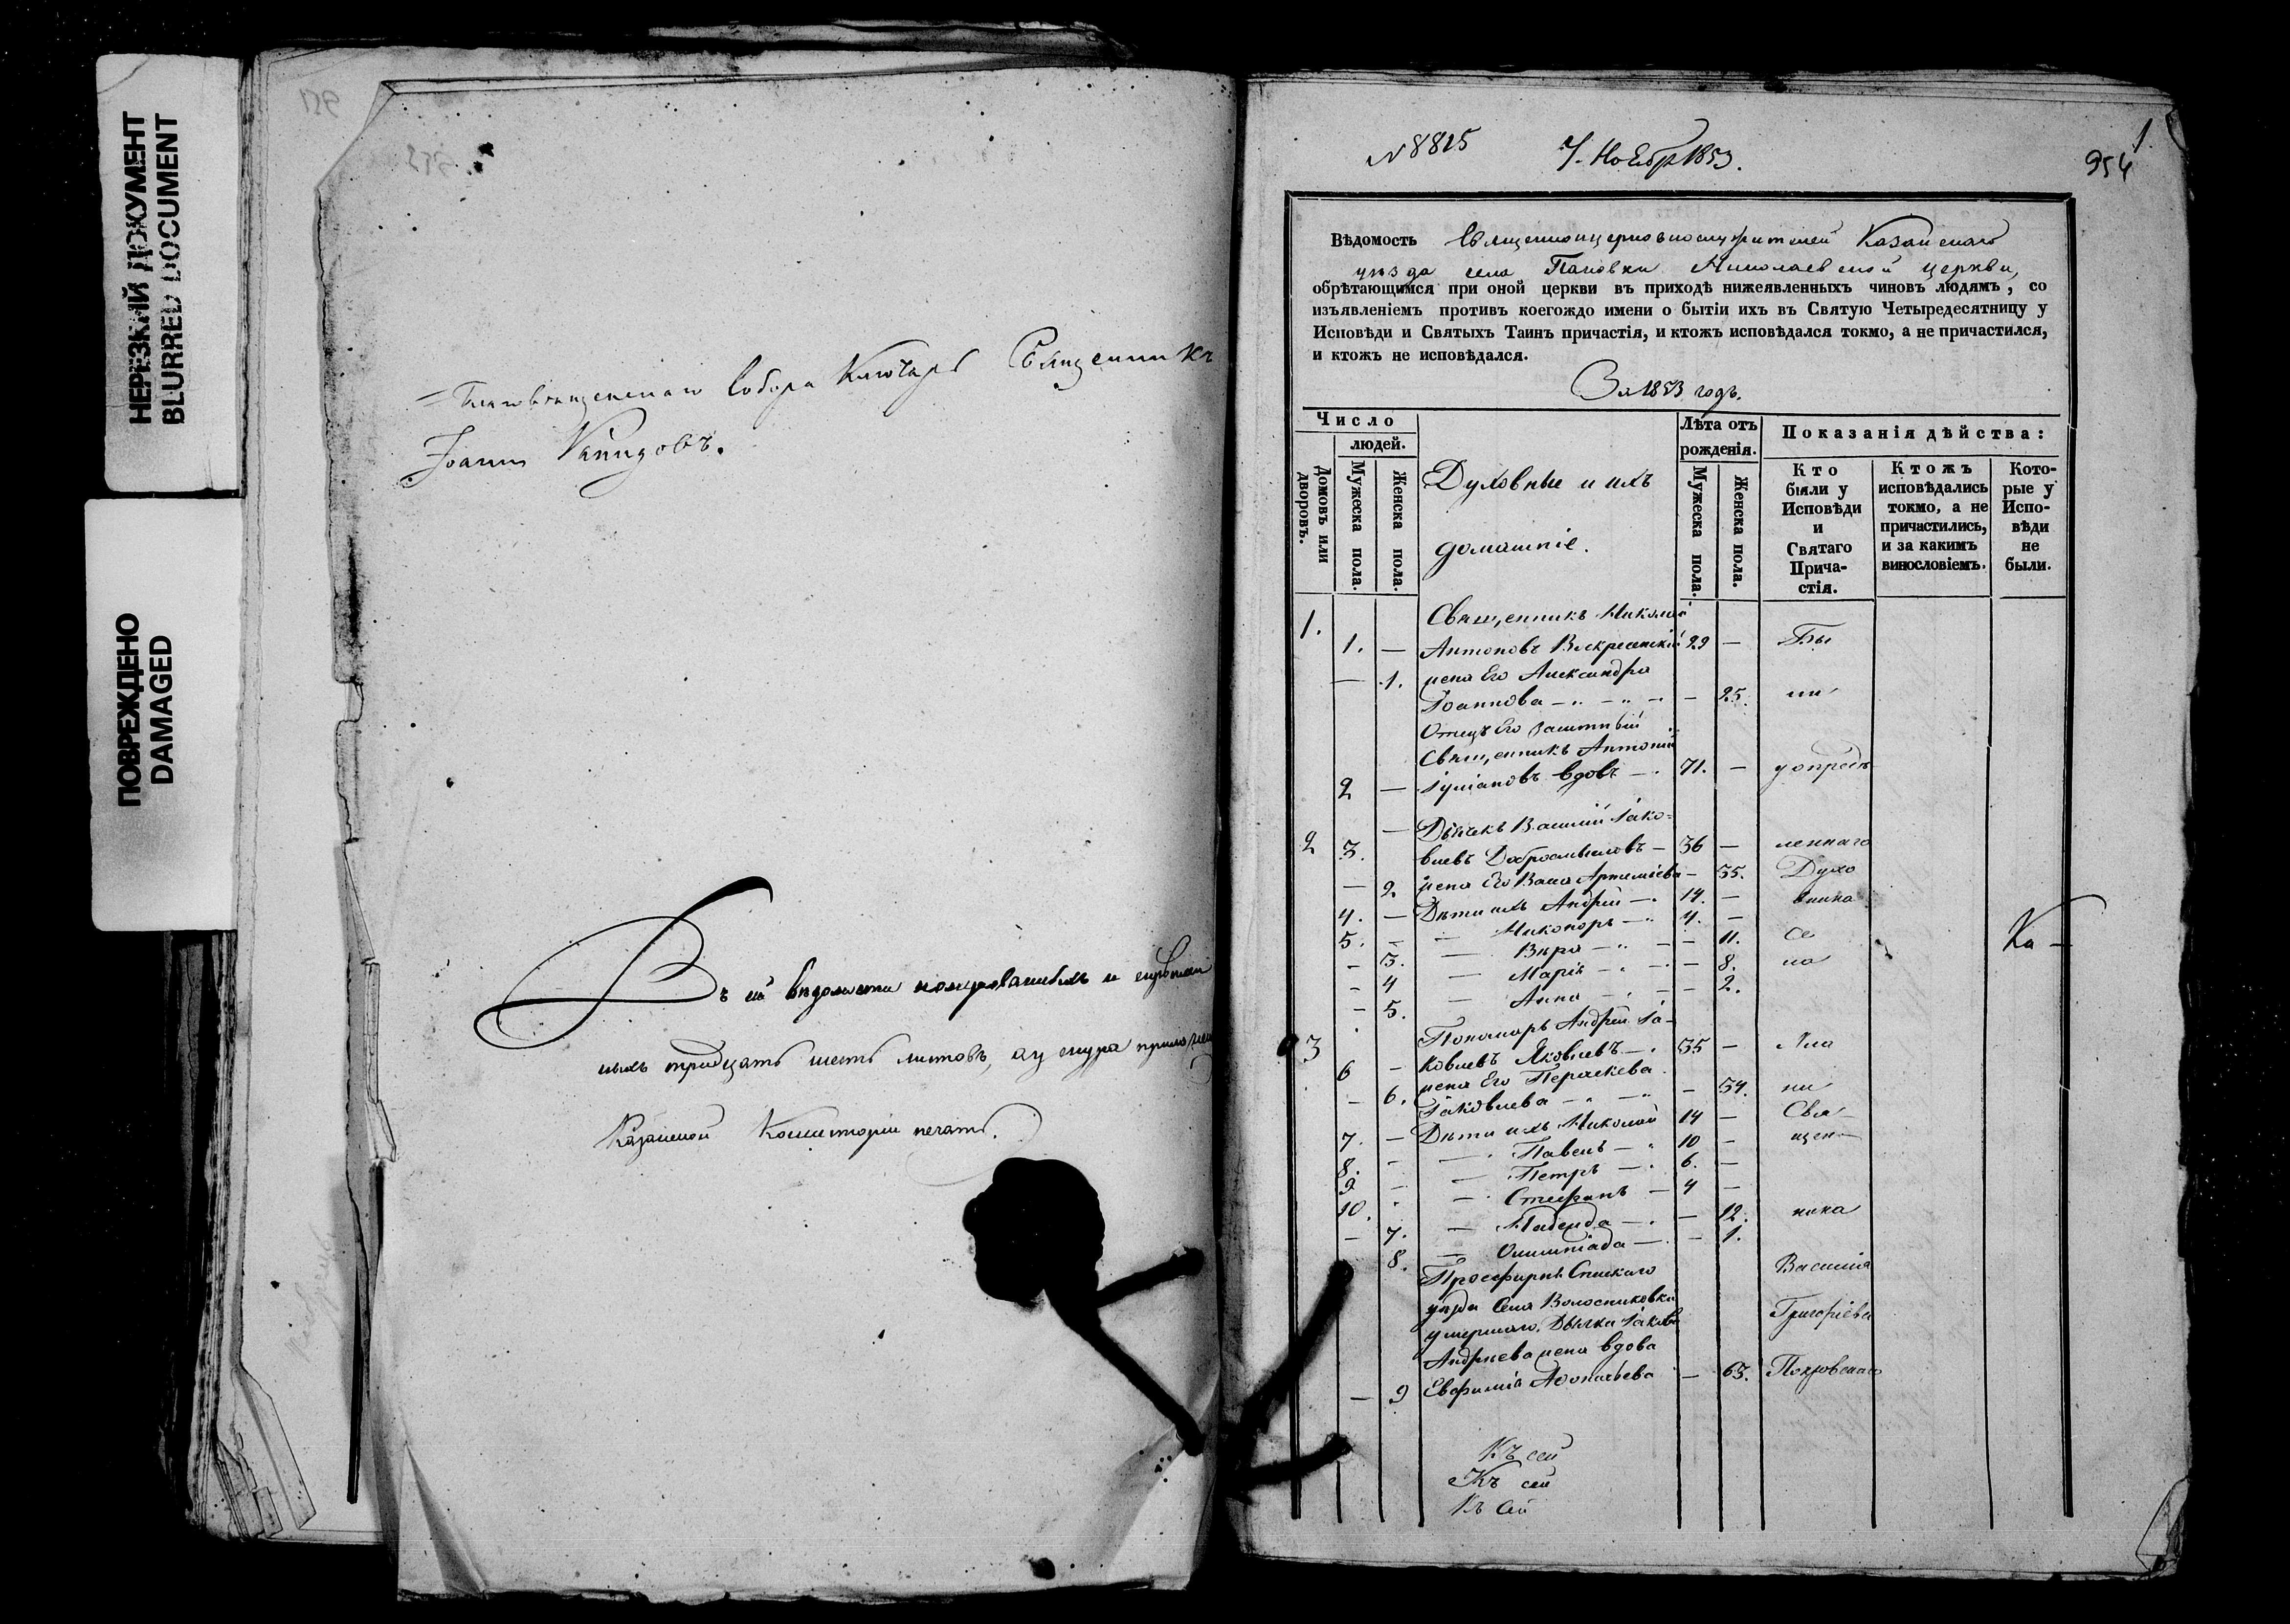 НЕРЕЗКИЙ ДОКУМЕНТ
BLURRED DOCUMENT
ПОВРЕЖДЕНО
DAMAGED
Собора Ключарь Священникъ
Іоаннъ
Въ сей вѣдомости
ныхъ тридцать шесть листовъ, а у снура приложена
Казанской Консисторіи печать.
N 8825 7. Ноебр 1853. 954 1.
Вѣдомость Священноцерковнослужителей Казанскаго
уѣзда села Пановки Николаевской церкви,
обрѣтающимся при оной церкви въ приходѣ нижеявленныхъ чиновъ людямъ, со
изъявленіемъ противъ коегождо имени о бытіи ихъ въ Святую Четыредесятницу у
Исповѣди и Святыхъ Таинъ причастія, и ктожъ исповѣдался токмо, а не причастился,
и ктожъ не исповѣдался.
За 1853 годъ.
Число
людей.
Домовъ или дворовъ.
Мужеска пола.
Женска пола.
Духовные и ихъ
домашніе.
Лѣта отъ
рожденія.
Мужеска пола.
Женска пола.
Показанія дѣйства:
Кто
были у
Исповѣди
и
Святаго
Прича-
стія.
Ктожъ
исповѣдались
токмо, а не
причастились,
и за какимъ
винословіемъ.
Кото-
рые у
Испо-
вѣди
не
были.
1. Священникъ Николай
1. — Антоновъ Воскресенскій 29 — Бы
— 1. жена Его Александра
Іоаннова — — 25. ли
Отецъ Его заштатный
Священникъ Антоній
2 — вдовъ — 71. — у опредѣ
Дьячекъ Василій Іако-
2 3. влевъ Добросмысловъ — 36 — леннаго
— 2. жена Его Васса Артемьева — 35. Духо
4. — Дѣти ихъ Андрей — 14. — вника
5. — — Никоноръ — 4. —
— 3. — Вѣра — — 11. Се
— 4 — Марія — — 8. ла
— 5. — Анна — — 2.
Ка —
3 Пономарь Андрей Іа-
6 — ковлевъ Яковлевъ — 35 —
жена Его Параскева
— 6. Іаковлева — — 34. ки
7. — Дѣти ихъ Николай 14 — Свя-
8. — — Павелъ — 10 — щен-
9 — — Петръ — 6. —
10. — Стефанъ — 4 —
— 7. — Надежда — — 12. ника
8. — Олимпіада — — 1.
Просфирня Спаскаго Василія
уѣзда Села Волосниковки
умершаго Дьячка Іакова Григорьева
Андреева жена вдова
— 9 Евфимія — 63. Покровскаго
Къ сей
Къ сей
Къ сей